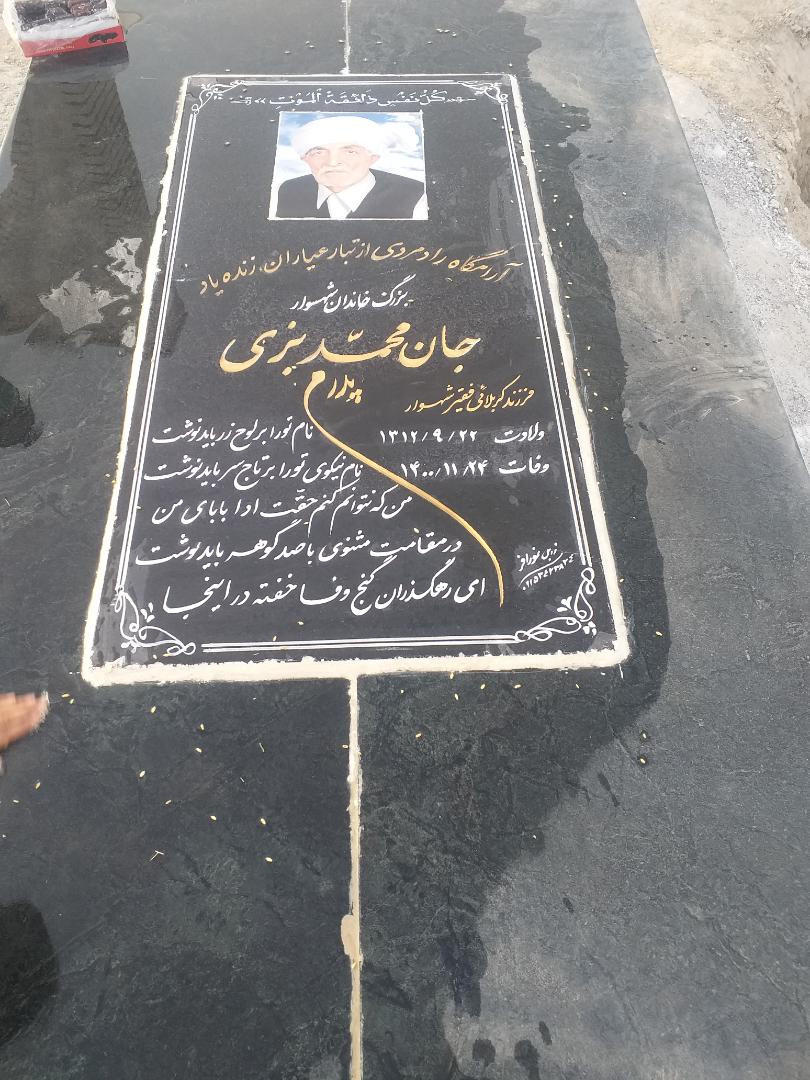 «کل نفس ذائقة الموت»
آرامگاه رادمردی از تبار عیاران، زنده یاد
بزرگ خاندان شهسوار
جان محمد بزی
فرزند کربلائی فقیر شهسوار
پدرم
ولادت ۱۳۱۲/۹/۲۲
وفات ۱۴۰۰/۱۱/۲۴
نام تو را بر لوح زر باید نوشت
نام نیکوی تو را بر تاج سر باید نوشت
من که نتوانم کنم حقت ادا بابای من
در مقامت مثنوی با صد گوهر باید نوشت
ای رهگذران گنج وفا خفته در اینجا